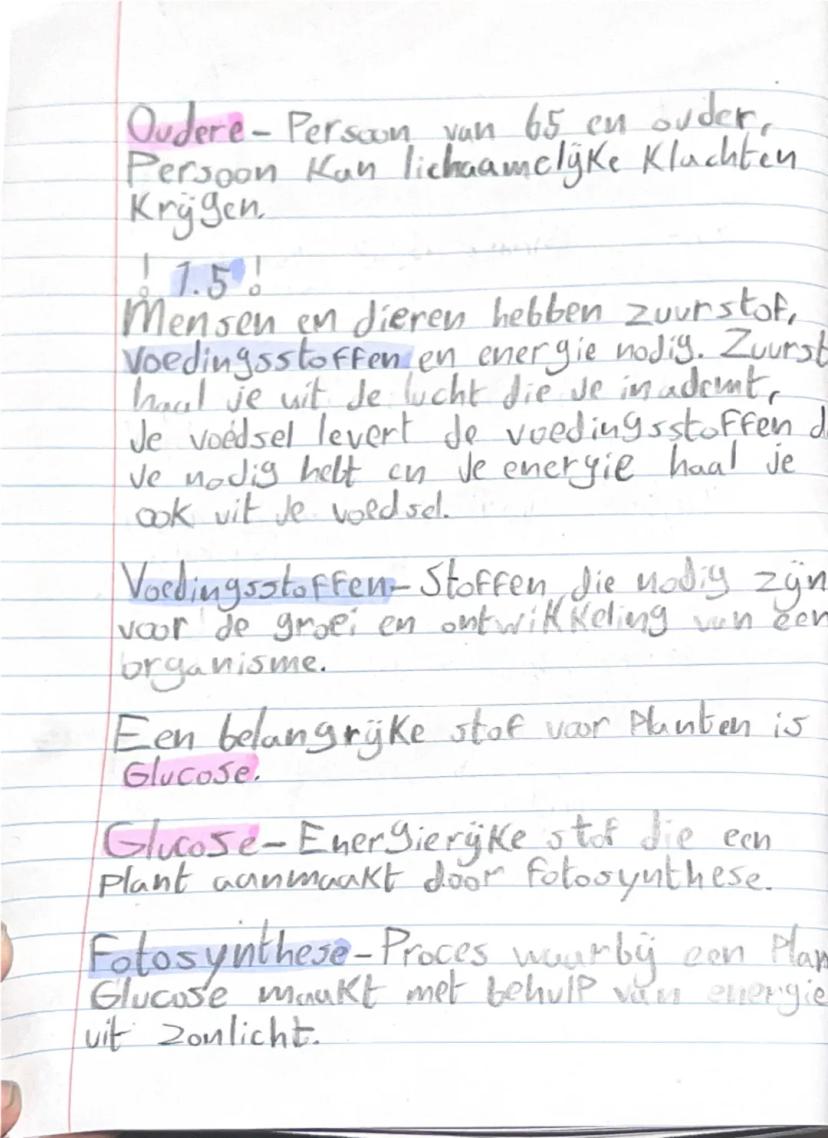 Oudere - Persoon van 65 en ouder,
Persoon kan lichaamelijke klachten
krijgen.
! 1.5 !
Mensen en dieren hebben zuurstof,
voedingsstoffen en energie nodig. Zuurst
haal je uit de lucht die je inademt,
Je voedsel levert de voedingsstoffen d
je nodig hebt en de energie haal je
ook uit je voedsel.
Voedingsstoffen - Stoffen die nodig zijn
voor de groei en ontwikkeling van een
organisme.
Een belangrijke stof voor Planten is
Glucose.
Glucose - Energierijke stof die een
plant aanmaakt door fotosynthese.
Fotosynthese - Proces waarbij een Plan
Glucose maakt met behulp van energie
uit zonlicht.